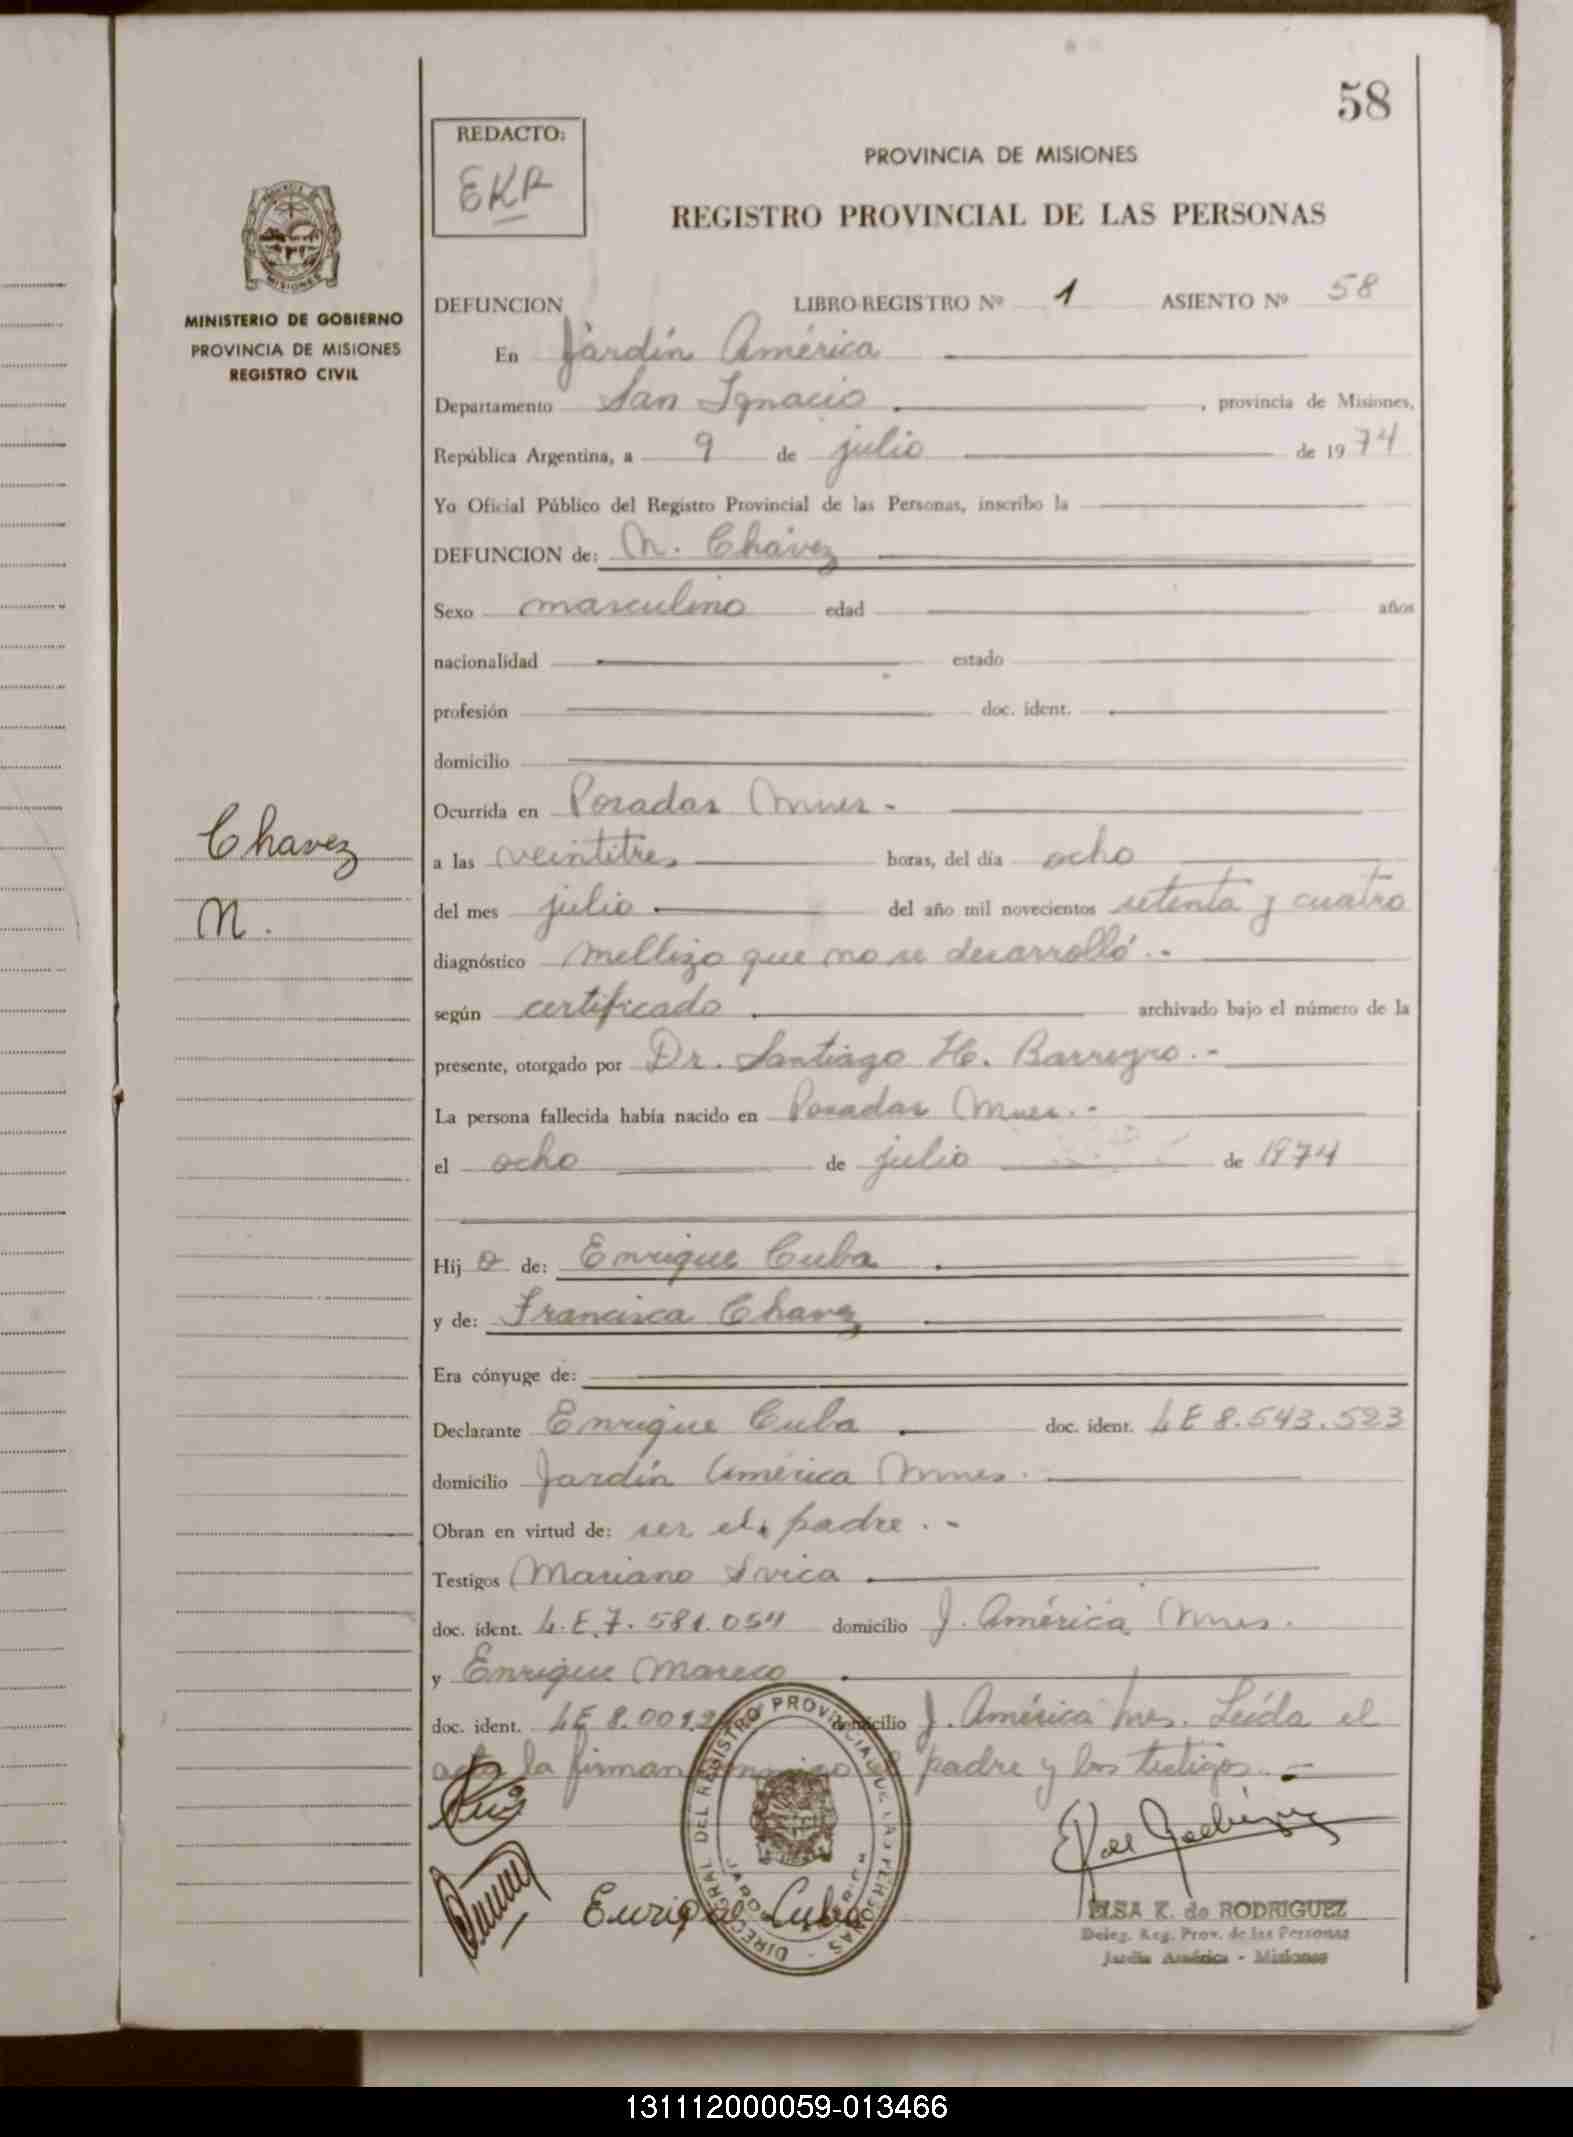 58
REDACTO:
EKR
PROVINCIA DE MISIONES
REGISTRO PROVINCIAL DE LAS PERSONAS
MINISTERIO DE GOBIERNO
PROVINCIA DE MISIONES
REGISTRO CIVIL
DEFUNCION LIBRO REGISTRO Nº 1 ASIENTO Nº 58
En Jardín América
Departamento San Ignacio, provincia de Misiones,
República Argentina, a 9 de julio de 1974
Yo Oficial Público del Registro Provincial de las Personas, inscribo la
DEFUNCION de: N. Chávez
Sexo masculino edad años
nacionalidad estado
profesión doc. ident.
domicilio
Ocurrida en Posadas Mnes -
Chavez
N.
a las veintitres horas, del día ocho
del mes julio del año mil novecientos setenta y cuatro
diagnóstico mellizo que no se desarrolló.-
según certificado archivado bajo el número de la
presente, otorgado por Dr. Santiago H. Barreyro.-
La persona fallecida había nacido en Posadas Mnes.-
el ocho de julio de 1974
Hijo de: Enrique Cuba
y de: Francisca Chavez
Era cónyuge de:
Declarante Enrique Cuba doc. ident. LE 8.543.523
domicilio Jardín América Mnes.
Obran en virtud de: ser el padre.-
Testigos Mariano
doc. ident. L.E. 7.581.054 domicilio J. América Mnes.
y Enrique Mareco
doc. ident. LE 8.0012 domicilio J. América Mnes. Leída el
acta la firman conmigo el padre y los testigos.-
DIRECC. GRAL DEL REGISTRO PROVINCIAL DE LAS PERSONAS
Enrique Cuba
ELSA K. de RODRIGUEZ
Deleg. Reg. Prov. de las Personas
Jardín América - Misiones
131112000059-013466